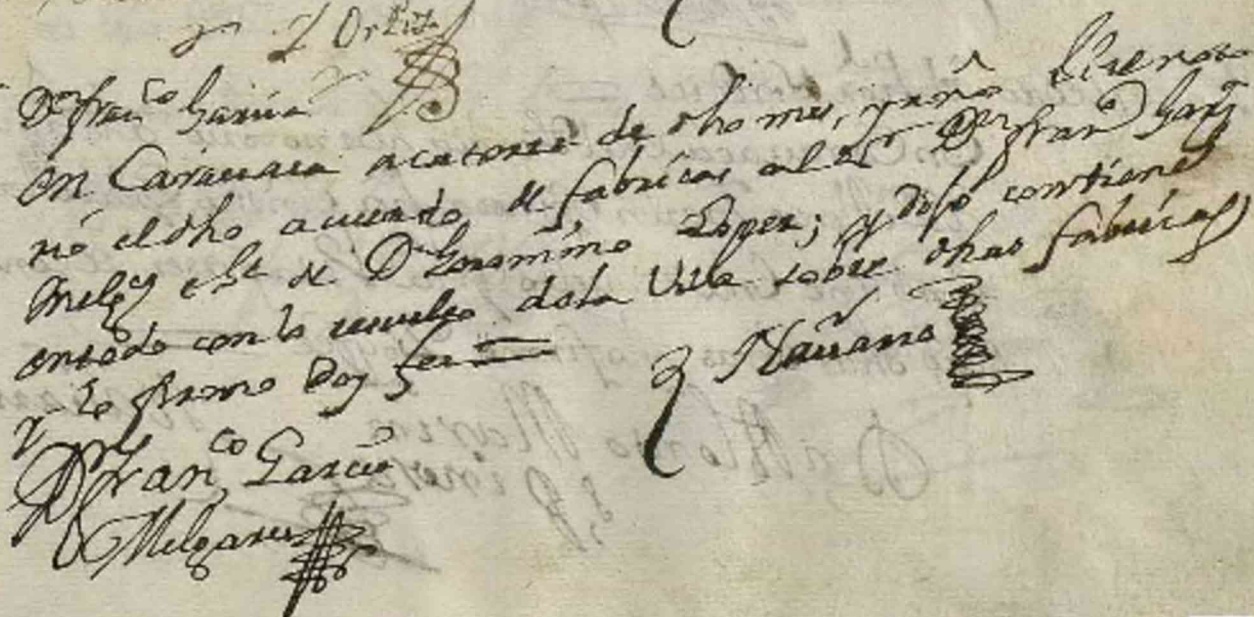 Ortiz
Dn franco Garcia
en Carauaca a catorze de dho mes, y año
el dho acuerdo de fabricas al Sr Dn Fran Garz
Melgs de Dn Geronimo Lopez; y dijo contiene
en todo con lo resuelto de la Villa sobre dhas fabricas,
y lo firmo Doy fee
Nauarro
Dn Franco Garcia
Melgares